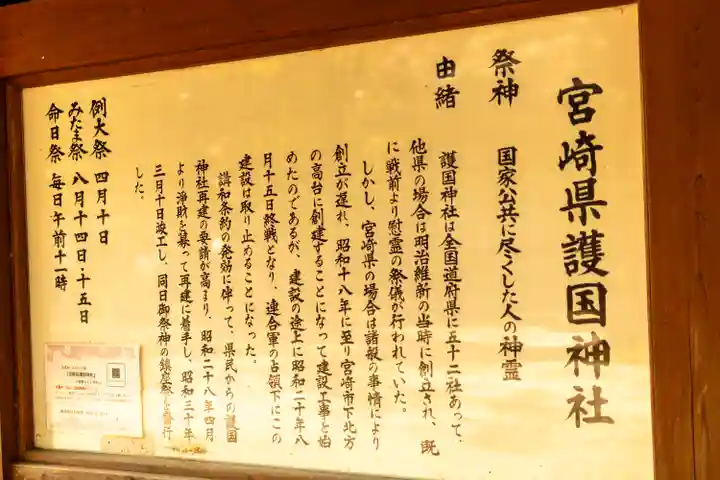 宮崎県護国神社
祭神　国家公共に尽くした人の神霊
由緒
護国神社は全国道府県に五十二社あって、
他県の場合は明治維新の当時に創立され、既
に戦前より慰霊の祭儀が行われていた。
しかし、宮崎県の場合は諸般の事情により
創立が遅れ、昭和十八年に至り宮崎市下北方
の高台に創建することになって建設工事を始
めたのであるが、建設の途上に昭和二十年八
月十五日終戦となり、連合軍の占領下にこの
建設は取り止めることになった。
講和条約の発効に伴って、県民からの護国
神社再建の要請が高まり、昭和二十八年四月
より浄財を募って再建に着手し、昭和三十年
三月十日竣工し、同日御祭神の鎮座祭を斎行
した。
例大祭　四月十日
みたま祭　八月十四日・十五日
命日祭　毎日午前十一時